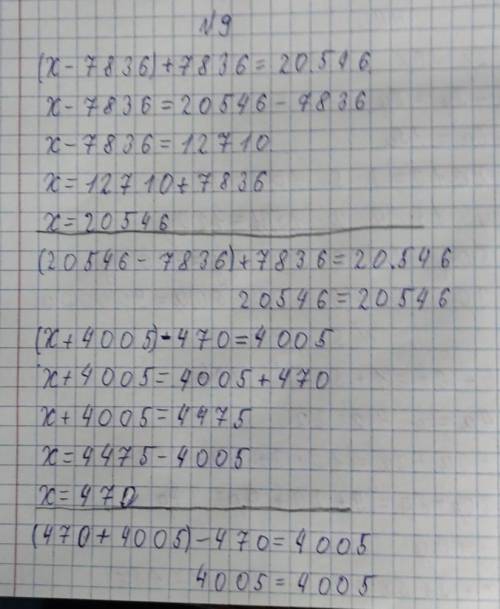 №9
(x - 7836) + 7836 = 20546
x - 7836 = 20546 - 7836
x - 7836 = 12710
x = 12710 + 7836
x = 20546
(20546 - 7836) + 7836 = 20546
20546 = 20546
(x + 4005) - 470 = 4005
x + 4005 = 4005 + 470
x + 4005 = 4475
x = 4475 - 4005
x = 470
(470 + 4005) - 470 = 4005
4005 = 4005